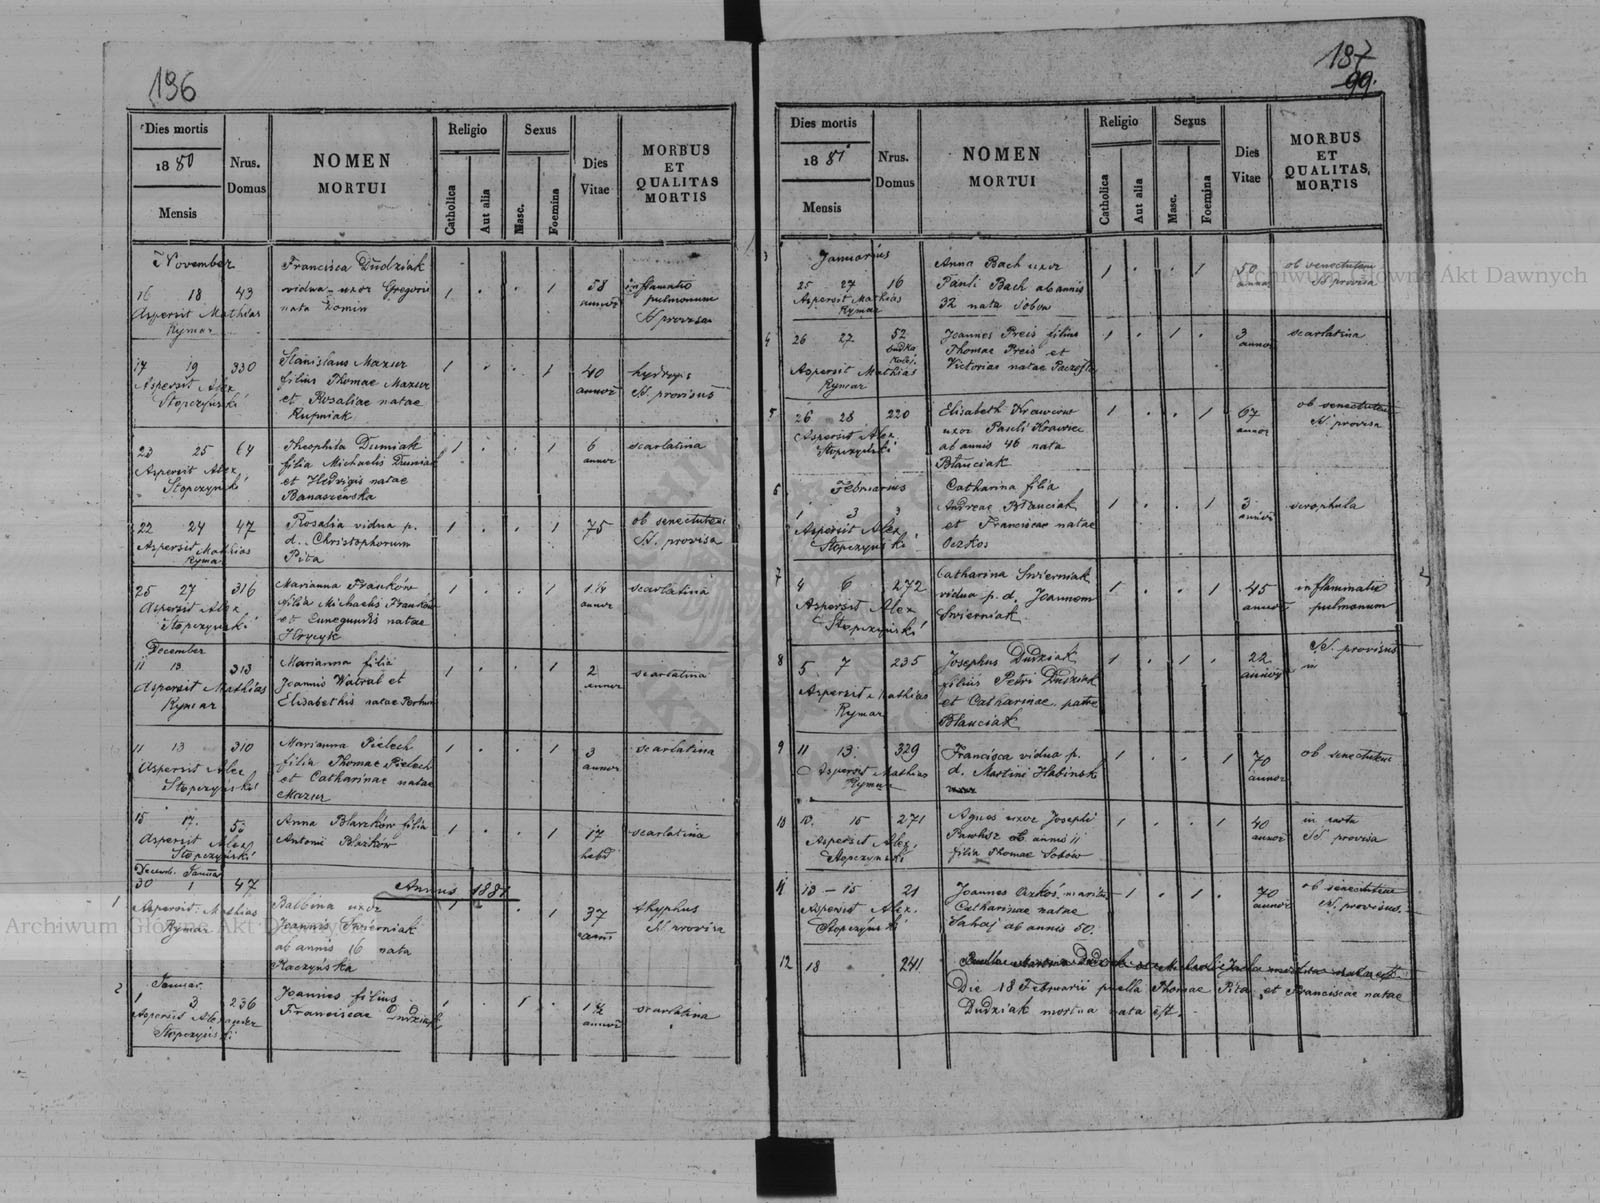 196
Dies mortis
1880
Mensis
Nrus. Domus
NOMEN MORTUI
Religio
Catholica
Aut alia
Sexus
Masc.
Foemina
Dies Vitae
MORBUS ET QUALITAS MORTIS
November
16 18 43
Aspersit Mathias
Rymar
Francisca Dudziak
vidua uxor Gregorii
nata Domin
1 . . 1
58
annor
inflamatio
pulmonum
SS provisa
17 19 330
Aspersit Alex
Stopczyński
Stanislaus Mazur
filius Thomae Mazur
et Rosaliae natae
Kupniak
1 . . 1
40
annor
hydrops
SS. provisus
23 25 64
Aspersit Alex
Stopczyński
Theophila Dumiak
filia Michaelis Dumiak
et Hedvigis natae
Banaszewska
1 . . 1
6
annor
scarlatina
22 24 47
Aspersit Mathias
Rymar
Rosalia vidua p.
d. Christophorum
Pita
1 . . 1
75
ob senectutem
SS. provisa
25 27 316
Aspersit Alex
Stopczyński
Marianna Franków
filia Michaelis Franków
et Cunegundis natae
Hrycyk
1 . . 1
1 1/2
annor
scarlatina
December
11 13 313
Aspersit Mathias
Rymar
Marianna filia
Joannis Watral et
Elisabethis natae
1 . . 1
2
annor
scarlatina
11 13 310
Aspersit Alex
Stopczyński
Marianna Pielech
filia Thomae Pielech
et Catharinae natae
Mazur
1 . . 1
3
annor
scarlatina
15 17
Aspersit Alex
Stopczyński
Anna Blaszków filia
Antonii Blaszków
1 . . 1
17
hebd
scarlatina
Annus 1881
1
Decemb. Januar
30 1 47
Aspersit Mathias
Rymar
Balbina uxor
Joannis Świerniak
ab annis 16 nata
Kaczyńska
1 . . 1
37
ann
thyphus
SS provisa
2
Januar.
1 3 236
Aspersit Alexander
Stopczyński
Joannes filius
Franciscae Dudziak
1 . 1 .
1 1/2
annor
scarlatina
187
99.
Dies mortis
1881
Mensis
Nrus. Domus
NOMEN MORTUI
Religio
Catholica
Aut alia
Sexus
Masc.
Foemina
Dies Vitae
MORBUS ET QUALITAS MORTIS
3
Januarius
25 27 16
Aspersit Mathias
Rymar
Anna Bach uxor
Pauli Bach ab annis
32 nata Sobów
1 . . 1
50
annor
ob senectutem
SS provisa
4
26 27 52
budka
kolej.
Aspersit Mathias
Rymar
Joannes Preis filius
Thomae Preis et
Victorias natae
1 . 1 .
3
annor
scarlatina
5
26 28 220
Aspersit Alex.
Stopczyński
Elisabeth Krawcow
uxor Pauli Krawiec
ab annis 46 nata
Błauciak
1 . . 1
67
annor
ob senectutem
SS. provisa
6
Februarius
1 3 3
Aspersit Alex.
Stopczyński
Catharina filia
Andreae Błauciak
et Franciscae natae
Oczkos
1 . . 1
3
annor
scrophula
7
4 6 272
Aspersit Alex
Stopczyński
Catharina Swierniak
vidua p. d. Joannem
Swierniak
1 . . 1
45
annor
inflammatio
pulmonum
8
5 7 235
Aspersit Mathias
Rymar
Josephus Dudziak
filius Petri Dudziak
et Catharinae
Błauciak
1 . 1 .
22
annor
SS. provisus
in
9
11 13 329
Aspersit Mathias
Rymar
Francisca vidua p.
d. Martini Habinsk
1 . . 1
70
annor
ob senectutem
10
13. 15 271
Aspersit Alex.
Stopczyński
Agnes uxor Josephi
Pawlisz ab annis 11
filia Thomae Sobów
1 . . 1
40
annor
in partu
SS provisa
11
13 - 15 21
Aspersit Alex.
Stopczyński
Joannes Oczkoś maritus
Catharinae natae
Sahaj ab annis 50.
1 . 1 .
70
annor
ob senectutem
SS. provisus.
12
18 241
Die 18 Februarii puella Thomae Pita et Franciscae natae
Dudziak mortua nata est.
Archiwum Główne Akt Dawnych
Archiwum Główne Akt Dawnych